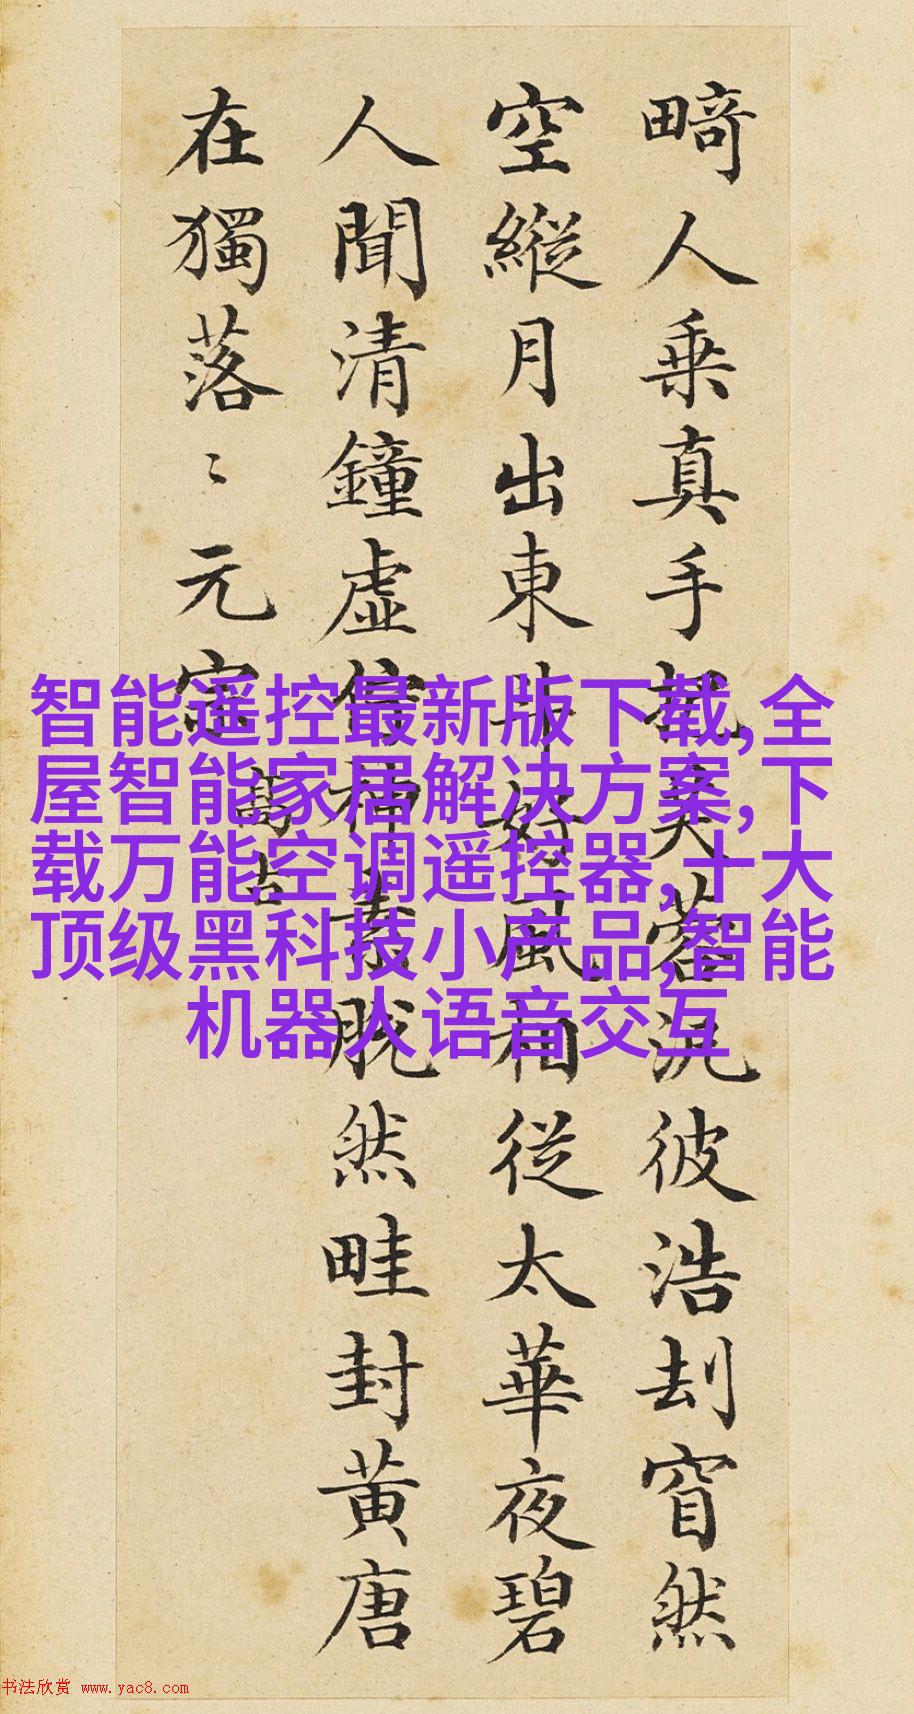 畸人乗真手把芙蓉汎彼浩刦窅然
空縱月出東斗好風相從太華夜碧
人聞清鐘虛佇神素脫然畦封黃唐
在獨落〻元宗
高古
智能遥控最新版下载,全
屋智能家居解决方案,下
载万能空调遥控器,十大
顶级黑科技小产品,智能
机器人语音交互
书法欣赏 www.yac8.com